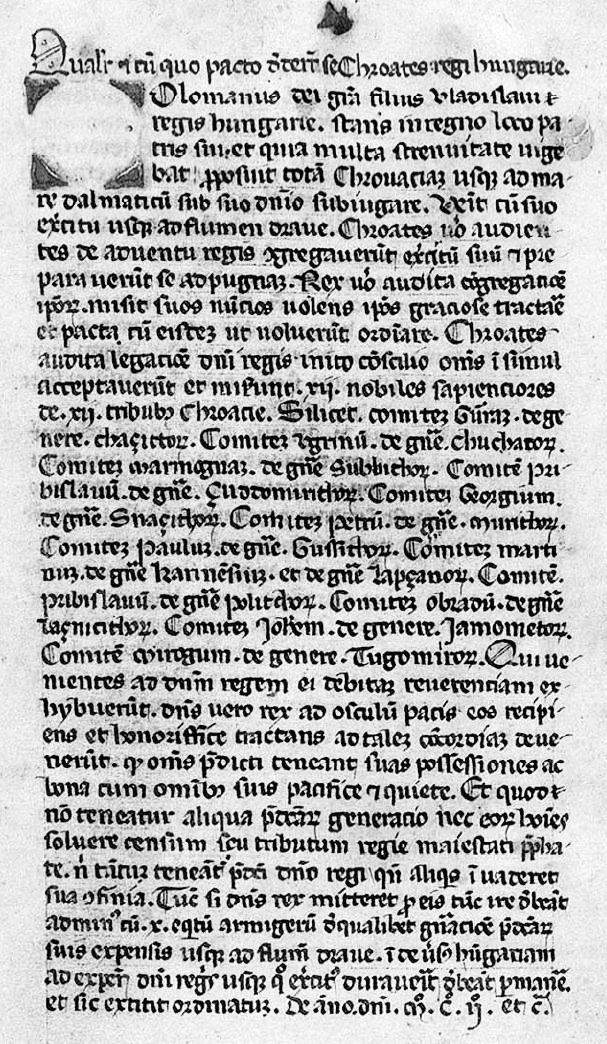 Qualr̃ ⁊ cũ quo pacto d̃derr̃t se Chroates regi hungarie.
Olomanus dei gr̃a filius vladislaui ⁊
regis hungarie. stans in regno loco pa-
tris sui. et quia multa strenuitate uige-
bat ꝓposuit totã Chrouaciaꝫ usqꝫ ad ma
re dalmaticũ sub suo dñio subiugare. Veĩt cũ suo
exĩcitu usqꝫ ad flumen draue. Chroates u͛o audien-
tes de aduentu regis ꝯgregauerũt exĩcitũ suũ ⁊ pre
parauerũt se ad pugnaꝫ. Rex u͛o audita cõgregatiõe
ipoꝝ. misit suos nũcios uolens ip̃os graciose tractar̃e
et pacta cũ eisteꝫ ut uoluerũt ordĩare. Chroates
audita legatiõe dñi regis inito cõscilio om̃s ĩ simul
acceptauerũt et misũnt. xij. nobiles sapienciores
de. xij. tribubꝫ Chroacie. Silicet. comiteꝫ Gũraꝫ. de ge-
nere. chaçittoꝝ. Comiteꝫ vgrinũ. de gñe. chuchatoꝝ.
Comiteꝫ marmognaꝫ. de gñe Subbithoꝝ. Comitẽ pri-
bislauũ. de gñe. Çuddomirithoꝝ. Comiteꝫ Georgium.
de gñe. Snaçithoꝝ. Comiteꝫ petrũ. de gñe. murithoꝝ.
Comiteꝫ pauluꝫ. de gñe. Gussithoꝝ. Comiteꝫ marti
nuꝫ. de gñe karinẽsiuꝫ. et de gñe lapçanoꝝ. Comitẽ.
pribislauũ. de gñe politchoꝝ. Comiteꝫ obradũ. de gñe
laçnicithoꝝ. Comiteꝫ Johem. de genere. Jamometoꝝ.
Comitẽ mirogum. de genere. Tugomiroꝝ. Qui ve-
nientes ad dñm regem ei dẽbitaꝫ reuerenciam ex-
hybuerũt. dñs vero rex ad osculũ pacis eos recipi-
ens et honoriffice tractans ad taleꝫ cõcordiaꝫ deue-
nerũt. ꝙ om̃s p̃dicti teneant suas possessiones ac
bona cum omĩbꝫ suis pacifice ⁊ quiete. Et quod ⁊
nõ teneatur aliqua p̃dc̃aꝝ generacio nec eoꝝ hoĩes
soluere censum seu tributum regie maiestati p̃ha-
te. ñ tm̃tuꝫ teneãt p̃dc̃i dño regi qñ aliq̃s ĩ uaderet
sua ꝯfinia. Tũc si dñs rex mitteret ꝓ eis tũc ire d̃beãt
ad min͛ cũ. x. eq̃tũ armigerũ d̃qualibet gñaciõe p̃dc̃aꝝ
suis expensis usqꝫ ad flum̃ draue. ĩde ũsꝰ hũgariam
ad expeñ dñi regꝭ usqꝫ q̃ exĩcitꝰ durauẽit d̃beãt ꝑmanẽ.
et sic extitit ordinatuꝫ. De ãno. dñi. m̃. c̃. ij̃. et c̃.